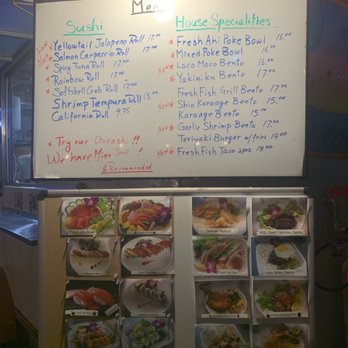 Menu
Sushi
New * Yellowtail Jalapeño Roll 17.00
New * Salmon Carpaccio Roll 17.00
* Spicy Tuna Roll 17.00
* Rainbow Roll 17.00
* Softshell Crab Roll 17.00
Shrimp Tempura Roll 13.00
California Roll 9.75
* Try our Chirashi !!
We have Miso Soup !
House Specialities
* Fresh Ahi Poke Bowl 16.00
* Mixed Poke Bowl 16.00
* Loco Moco Bento 16.00
* Yakiniku Bento 17.00
Fresh Fish Grill Bento 17.00
New * Shio Karaage Bento 15.00
Karaage Bento 15.00
New * Garlic Shrimp Bento 17.00
Teriyaki Burger w/fries 14.00
New * Fresh Fish Taco 2pcs 14.00
* Recommended
Teriyaki Burger
BBQ Beef Yakiniku Bento
Loco Moco Bento